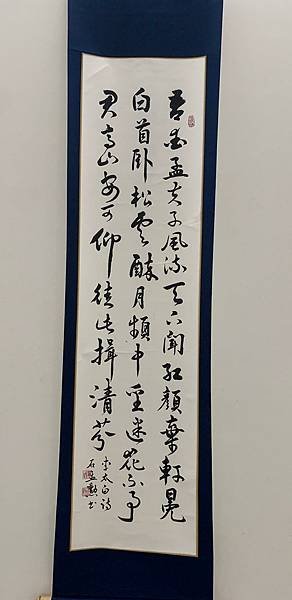 吾爱孟夫子風流天下聞紅顏棄軒冕
白首臥松雲醉月頻中聖迷花不事
君高山安可仰徒此揖清芬
李太白詩
石盈勳书